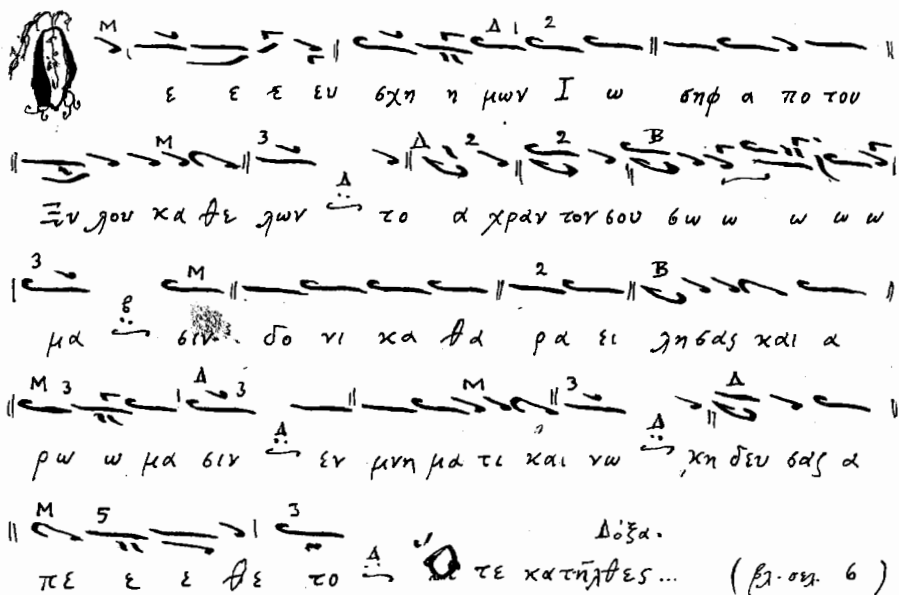 Ο ε ε ε ευ σχη η μων Ι ω σηφ α πο του
Ξυ λου κα θε λων Δ το α χραν τον σου σω ω ω ω ω
μα σιν δο νι κα θα ρα ει λη σας και α
ρω ω μα σιν Δ εν μνη μα τι και νω Δ κη δευ σας α
Δόξα.
πε ε ε θε το Δ τε κατῆλθες... (βλ. σελ. 6)